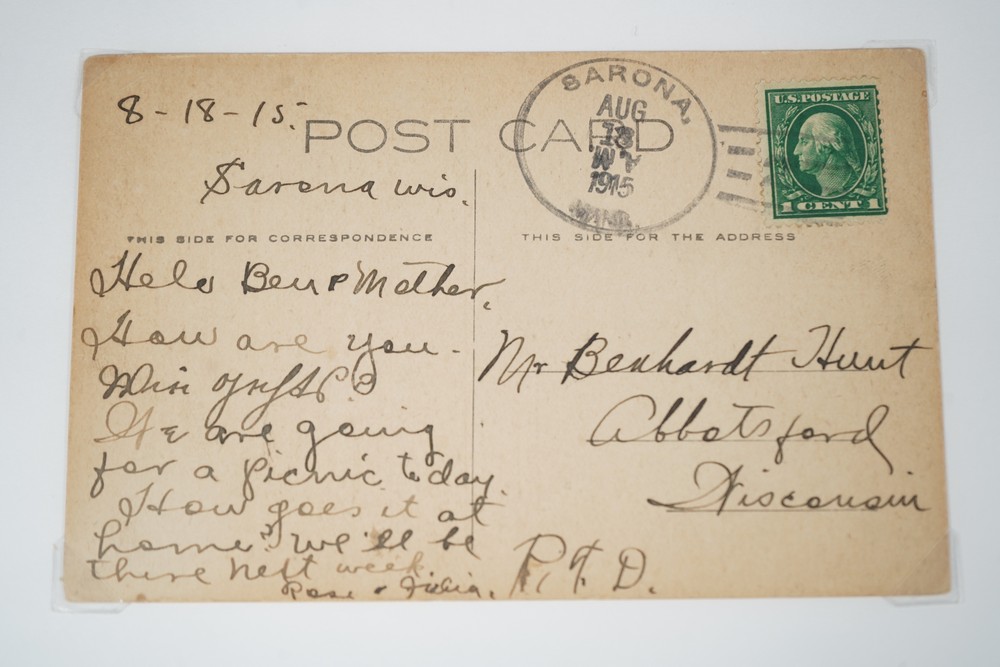 8-18-15.
POST CARD
Sarona wis.
SARONA,
AUG
18
1915
WIS.
U.S. POSTAGE
1 CENT 1
THIS SIDE FOR CORRESPONDENCE
THIS SIDE FOR THE ADDRESS
Helo Ben & Mother,
How are you-
We are going
for a picnic today.
How goes it at
home. we'll be
there next week
Rose &
Mr Benhardt Hunt
Abbotsford
Wisconsin
R.F.D.